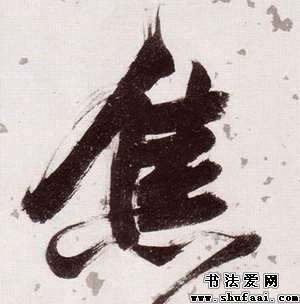 焦
书法爱网
www.shufaai.com